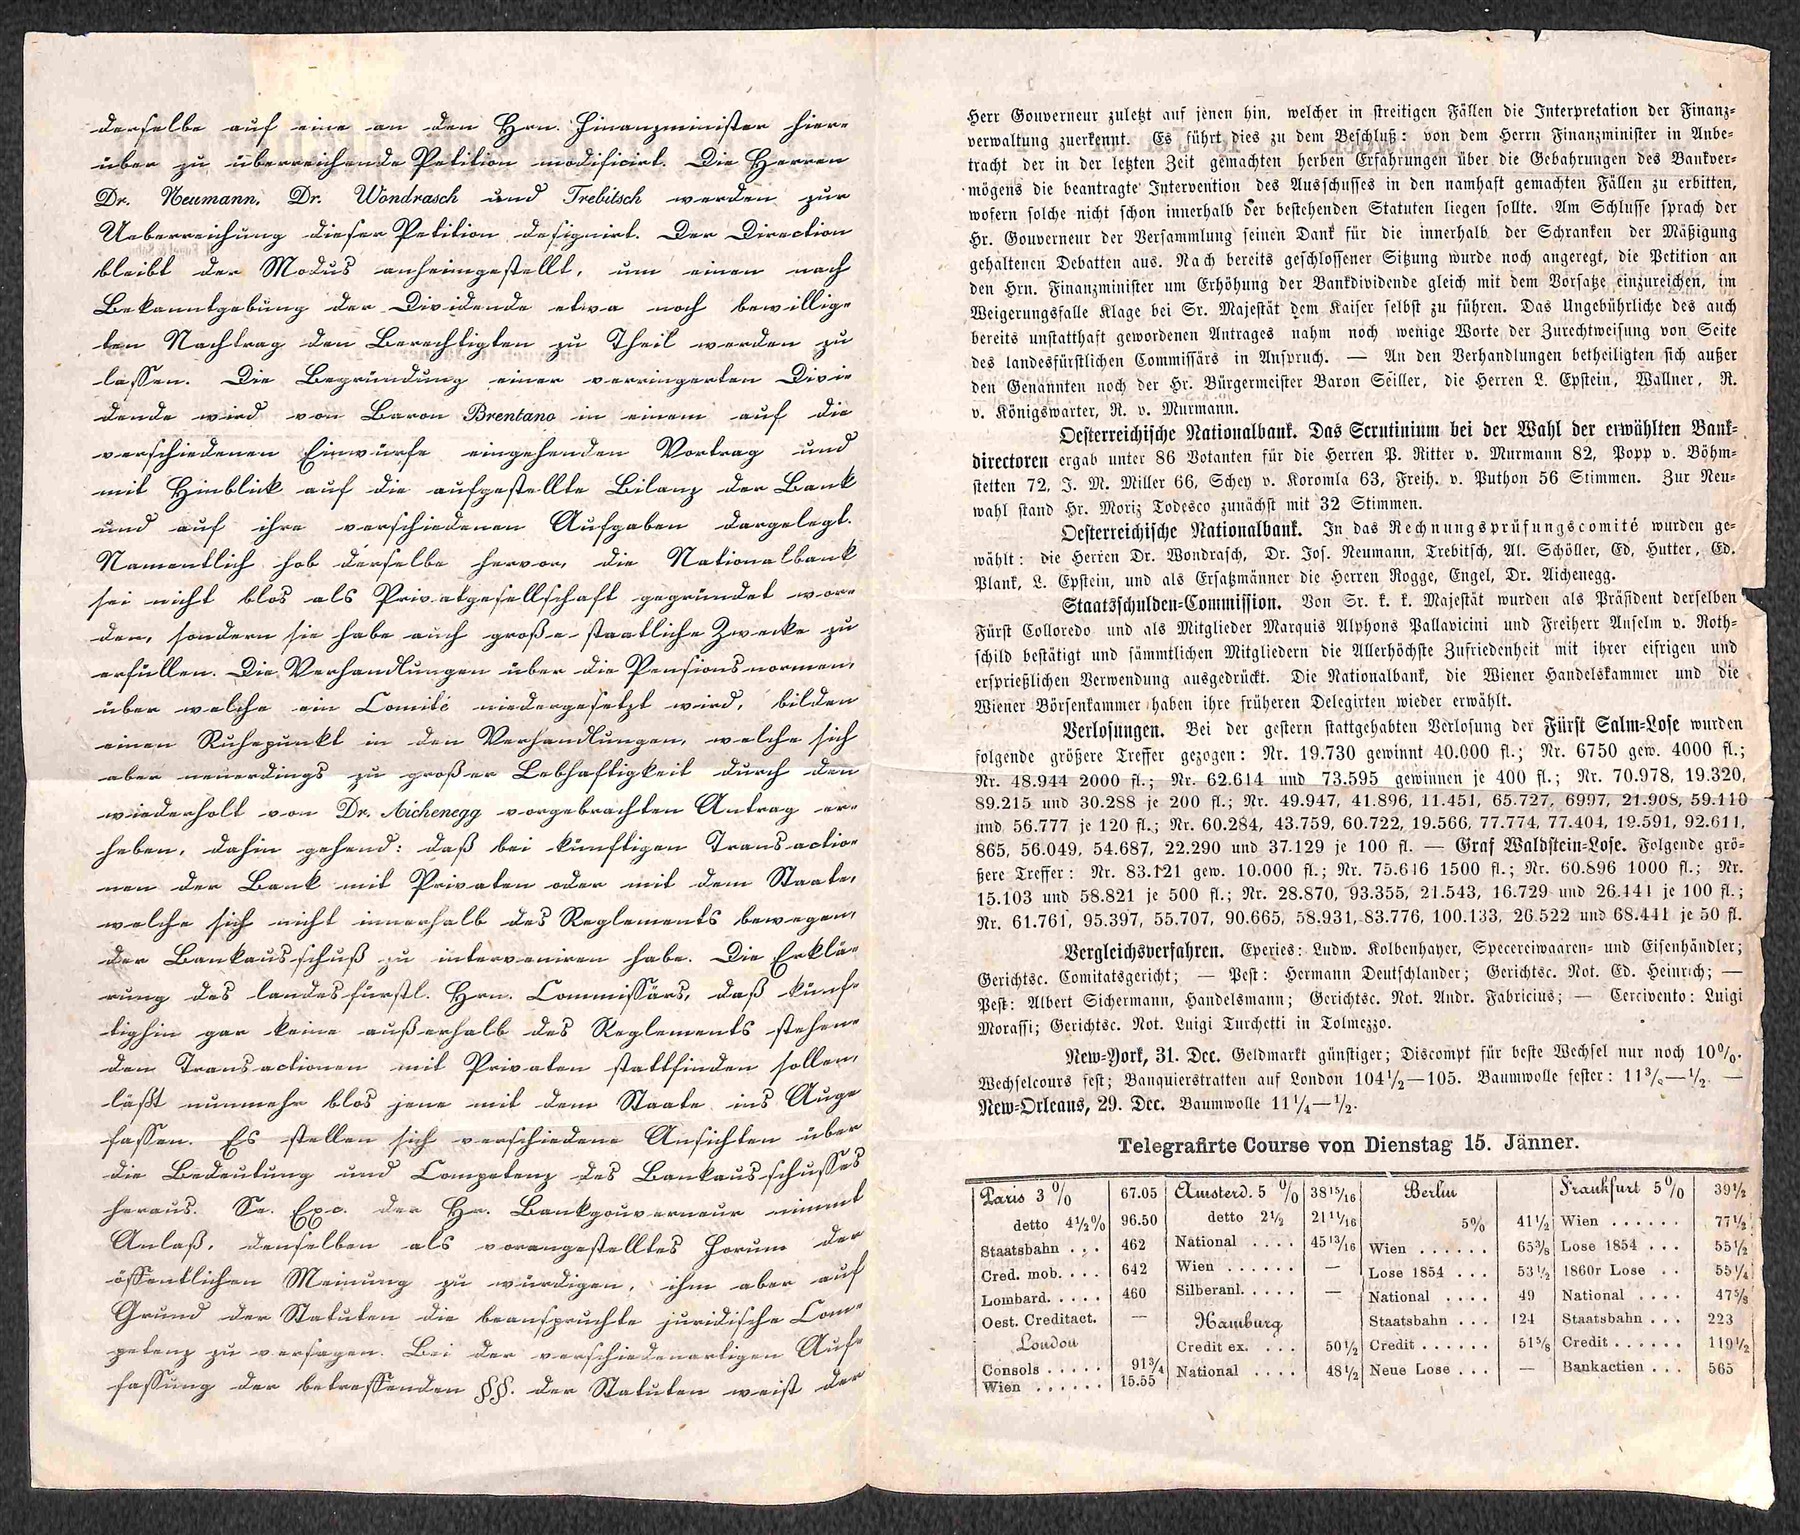 derselbe auf eine an den Hrn. Finanzminister hier-
über zu überreichende Petition modificirt. Die Herren
Dr. Neumann, Dr. Wondrasch und Trebitsch werden zur
Ueberreichung dieser Petition designirt. Der Direction
bleibt der Modus anheimgestellt, um einen nach
Bekanntgebung der Dividende etwa noch bewillig-
ten Nachtrag den Berechtigten zu Theil werden zu
lassen. Die Begründung einer verringerten Divi-
dende wird von Baron Brentano in einem auf die
verschiedenen Einwürfe eingehenden Vortrag und
mit Hinblick auf die aufgestellte Bilanz der Bank
und auf ihre verschiedenen Aufgaben dargelegt.
Namentlich hob derselbe hervor, die Nationalbank
sei nicht blos als Privatgesellschaft gegründet wor-
den, sondern sie habe auch große staatliche Zwecke zu
erfüllen. Die Verhandlungen über die Pensionsnormen,
über welche ein Comité niedergesetzt wird, bilden
einen Ruhepunkt in den Verhandlungen, welche sich
aber neuerdings zu großer Lebhaftigkeit durch den
wiederholt von Dr. Aichenegg vorgebrachten Antrag er-
heben, dahin gehend: daß bei künftigen Transactio-
nen der Bank mit Privaten oder mit dem Staate,
welche sich nicht innerhalb des Reglements bewegen,
der Bankausschuß zu interveniren habe. Die Erklä-
rung des landesfürstl. Hrn. Commissärs, daß künf-
tighin gar keine außerhalb des Reglements stehen-
den Transactionen mit Privaten stattfinden sollen,
läßt nunmehr blos jene mit dem Staate ins Auge
fassen. Es stellen sich verschiedene Ansichten über
die Bedeutung und Competenz des Bankausschusses
heraus. Se. Exc. der Hr. Bankgouverneur nimmt
Anlaß, denselben als vorangestelltes Forum der
öffentlichen Meinung zu würdigen, ihm aber auf
Grund der Statuten die beanspruchte juridische Com-
petenz zu versagen. Bei der verschiedenartigen Auf-
fassung der betreffenden §§. der Statuten weist der
Herr Gouverneur zuletzt auf jenen hin, welcher in streitigen Fällen die Interpretation der Finanz-
verwaltung zuerkennt. Es führt dies zu dem Beschluß: von dem Herrn Finanzminister in Anbe-
tracht der in der letzten Zeit gemachten herben Erfahrungen über die Gebahrungen des Bankver-
mögens die beantragte Intervention des Ausschusses in den namhaft gemachten Fällen zu erbitten,
wofern solche nicht schon innerhalb der bestehenden Statuten liegen sollte. Am Schlusse sprach der
Hr. Gouverneur der Versammlung seinen Dank für die innerhalb der Schranken der Mäßigung
gehaltenen Debatten aus. Nach bereits geschlossener Sitzung wurde noch angeregt, die Petition an
den Hrn. Finanzminister um Erhöhung der Bankdividende gleich mit dem Vorsatze einzureichen, im
Weigerungsfalle Klage bei Sr. Majestät dem Kaiser selbst zu führen. Das Ungebührliche des auch
bereits unstatthaft gewordenen Antrages nahm noch wenige Worte der Zurechtweisung von Seite
des landesfürstlichen Commissärs in Anspruch. — An den Verhandlungen betheiligten sich außer
den Genannten noch der Hr. Bürgermeister Baron Seiller, die Herren L. Epstein, Wallner, R.
v. Königswarter, R. v. Murmann.
Oesterreichische Nationalbank. Das Scrutinium bei der Wahl der erwählten Bank-
directoren ergab unter 86 Votanten für die Herren P. Ritter v. Murmann 82, Popp v. Böhm-
stetten 72, J. M. Miller 66, Schey v. Koromla 63, Freih. v. Puthon 56 Stimmen. Zur Neu-
wahl stand Hr. Moriz Todesco zunächst mit 32 Stimmen.
Oesterreichische Nationalbank. In das Rechnungsprüfungscomité wurden ge-
wählt: die Herren Dr. Wondrasch, Dr. Jos. Neumann, Trebitsch, Al. Schöller, Ed. Hutter, Ed.
Plank, L. Epstein, und als Ersatzmänner die Herren Rogge, Engel, Dr. Aichenegg.
Staatsschulden-Commission. Von Sr. k. k. Majestät wurden als Präsident derselben
Fürst Colloredo und als Mitglieder Marquis Alphons Pallavicini und Freiherr Anselm v. Roth-
schild bestätigt und sämmtlichen Mitgliedern die Allerhöchste Zufriedenheit mit ihrer eifrigen und
ersprießlichen Verwendung ausgedrückt. Die Nationalbank, die Wiener Handelskammer und die
Wiener Börsenkammer haben ihre früheren Delegirten wieder erwählt.
Verlosungen. Bei der gestern stattgehabten Verlosung der Fürst Salm-Lose wurden
folgende größere Treffer gezogen: Nr. 19.730 gewinnt 40.000 fl.; Nr. 6750 gew. 4000 fl.;
Nr. 48.944 2000 fl.; Nr. 62.614 und 73.595 gewinnen je 400 fl.; Nr. 70.978, 19.320,
89.215 und 30.288 je 200 fl.; Nr. 49.947, 41.896, 11.451, 65.727, 6997, 21.908, 59.110
und 56.777 je 120 fl.; Nr. 60.284, 43.759, 60.722, 19.566, 77.774, 77.404, 19.591, 92.611,
865, 56.049, 54.687, 22.290 und 37.129 je 100 fl. — Graf Waldstein-Lose. Folgende grö-
ßere Treffer: Nr. 83.121 gew. 10.000 fl.; Nr. 75.616 1500 fl.; Nr. 60.896 1000 fl.; Nr.
15.103 und 58.821 je 500 fl.; Nr. 28.870, 93.355, 21.543, 16.729 und 26.441 je 100 fl.;
Nr. 61.761, 95.397, 55.707, 90.665, 58.931, 83.776, 100.133, 26.522 und 68.441 je 50 fl.
Vergleichsverfahren. Eperies: Ludw. Kolbenhayer, Specereiwaaren- und Eisenhändler;
Gerichtsc. Comitatsgericht; — Pest: Hermann Deutschlander; Gerichtsc. Not. Ed. Heinrich; —
Pest: Albert Sichermann, Handelsmann; Gerichtsc. Not. Andr. Fabricius; — Cercivento: Luigi
Morassi; Gerichtsc. Not. Luigi Turchetti in Tolmezzo.
New-York, 31. Dec. Geldmarkt günstiger; Discompt für beste Wechsel nur noch 10%.
Wechselcours fest; Banquierstratten auf London 104½—105. Baumwolle fester: 11⅜—½. —
New-Orleans, 29. Dec. Baumwolle 11¼—½.
Telegrafirte Course von Dienstag 15. Jänner.
Paris 3% 67.05 Amsterd. 5% 38 15/16 Berlin Frankfurt 5% 39½
detto 4½% 96.50 detto 2½ 21 11/16 5% 41½ Wien ...... 77½
Staatsbahn ... 462 National .... 45 13/16 Wien ...... 65⅜ Lose 1854 ... 55½
Cred. mob. ... 642 Wien ...... — Lose 1854 ... 53½ 1860r Lose .. 55¼
Lombard. .... 460 Silberanl. .... — National .... 49 National .... 47⅝
Oest. Creditact. — Hamburg Staatsbahn ... 124 Staatsbahn ... 223
London Credit ex. ... 50½ Credit ...... 51⅝ Credit ...... 119½
Consols ..... 91¾ National .... 48½ Neue Lose ... — Bankactien ... 565
Wien ...... 15.55